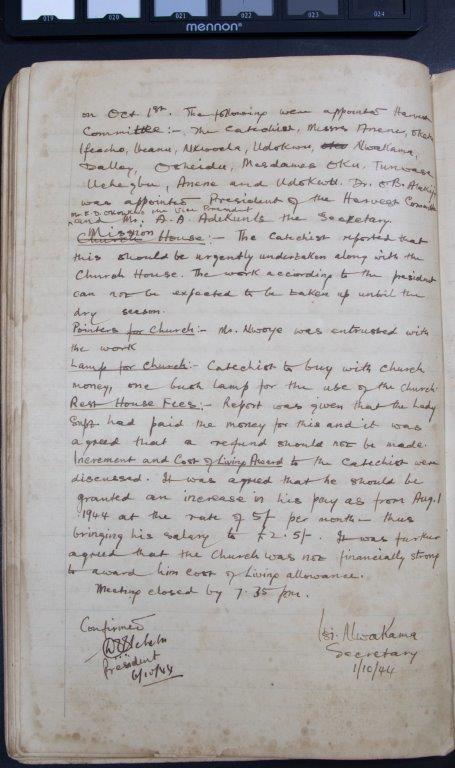 019 020 021 022 023 024
mennon
on Oct 1st. The following were appointed Harvest
Committee:- The Catechist, Messrs Anene, Okeke
Ifeacho, Ibeanu, Nkwocha, Udokwu, Nwakama,
Dalley, Osheidu, Mesdames Oku, Tunwase
Uchegbu, Anene and Udokwu. Dr. O.B. Alakija
was appointed President of the Harvest Committee
the Vice President
and Mr. A. A. Adekunle the Secretary.
Mission
Church House:- The Catechist reported that
this should be urgently undertaken along with the
Church House. The work according to the president
can not be expected to be taken up until the
dry season.
Pointers for Church:- Mr. Nwoye was entrusted with
the work
Lamp for Church:- Catechist to buy with church
money, one bush lamp for the use of the church.
Rest House Fees:- Report was given that the Lady
Supt had paid the money for this and it was
agreed that a refund should not be made.
Increment and Cost of Living Award to the catechist were
discussed. It was agreed that he should be
granted an increase in his pay as from Aug. 1
1944 at the rate of 5/- per month - thus
bringing his salary to £2.5/-. It was further
agreed that the Church was not financially strong
to award him cost of living allowance.
Meeting closed by 7.35 pm.
Confirmed
President
6/10/44
Nwakama
Secretary
1/10/44